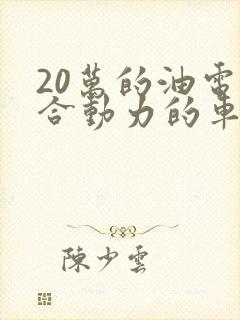 20萬的油電
合動力的車
陳少雲